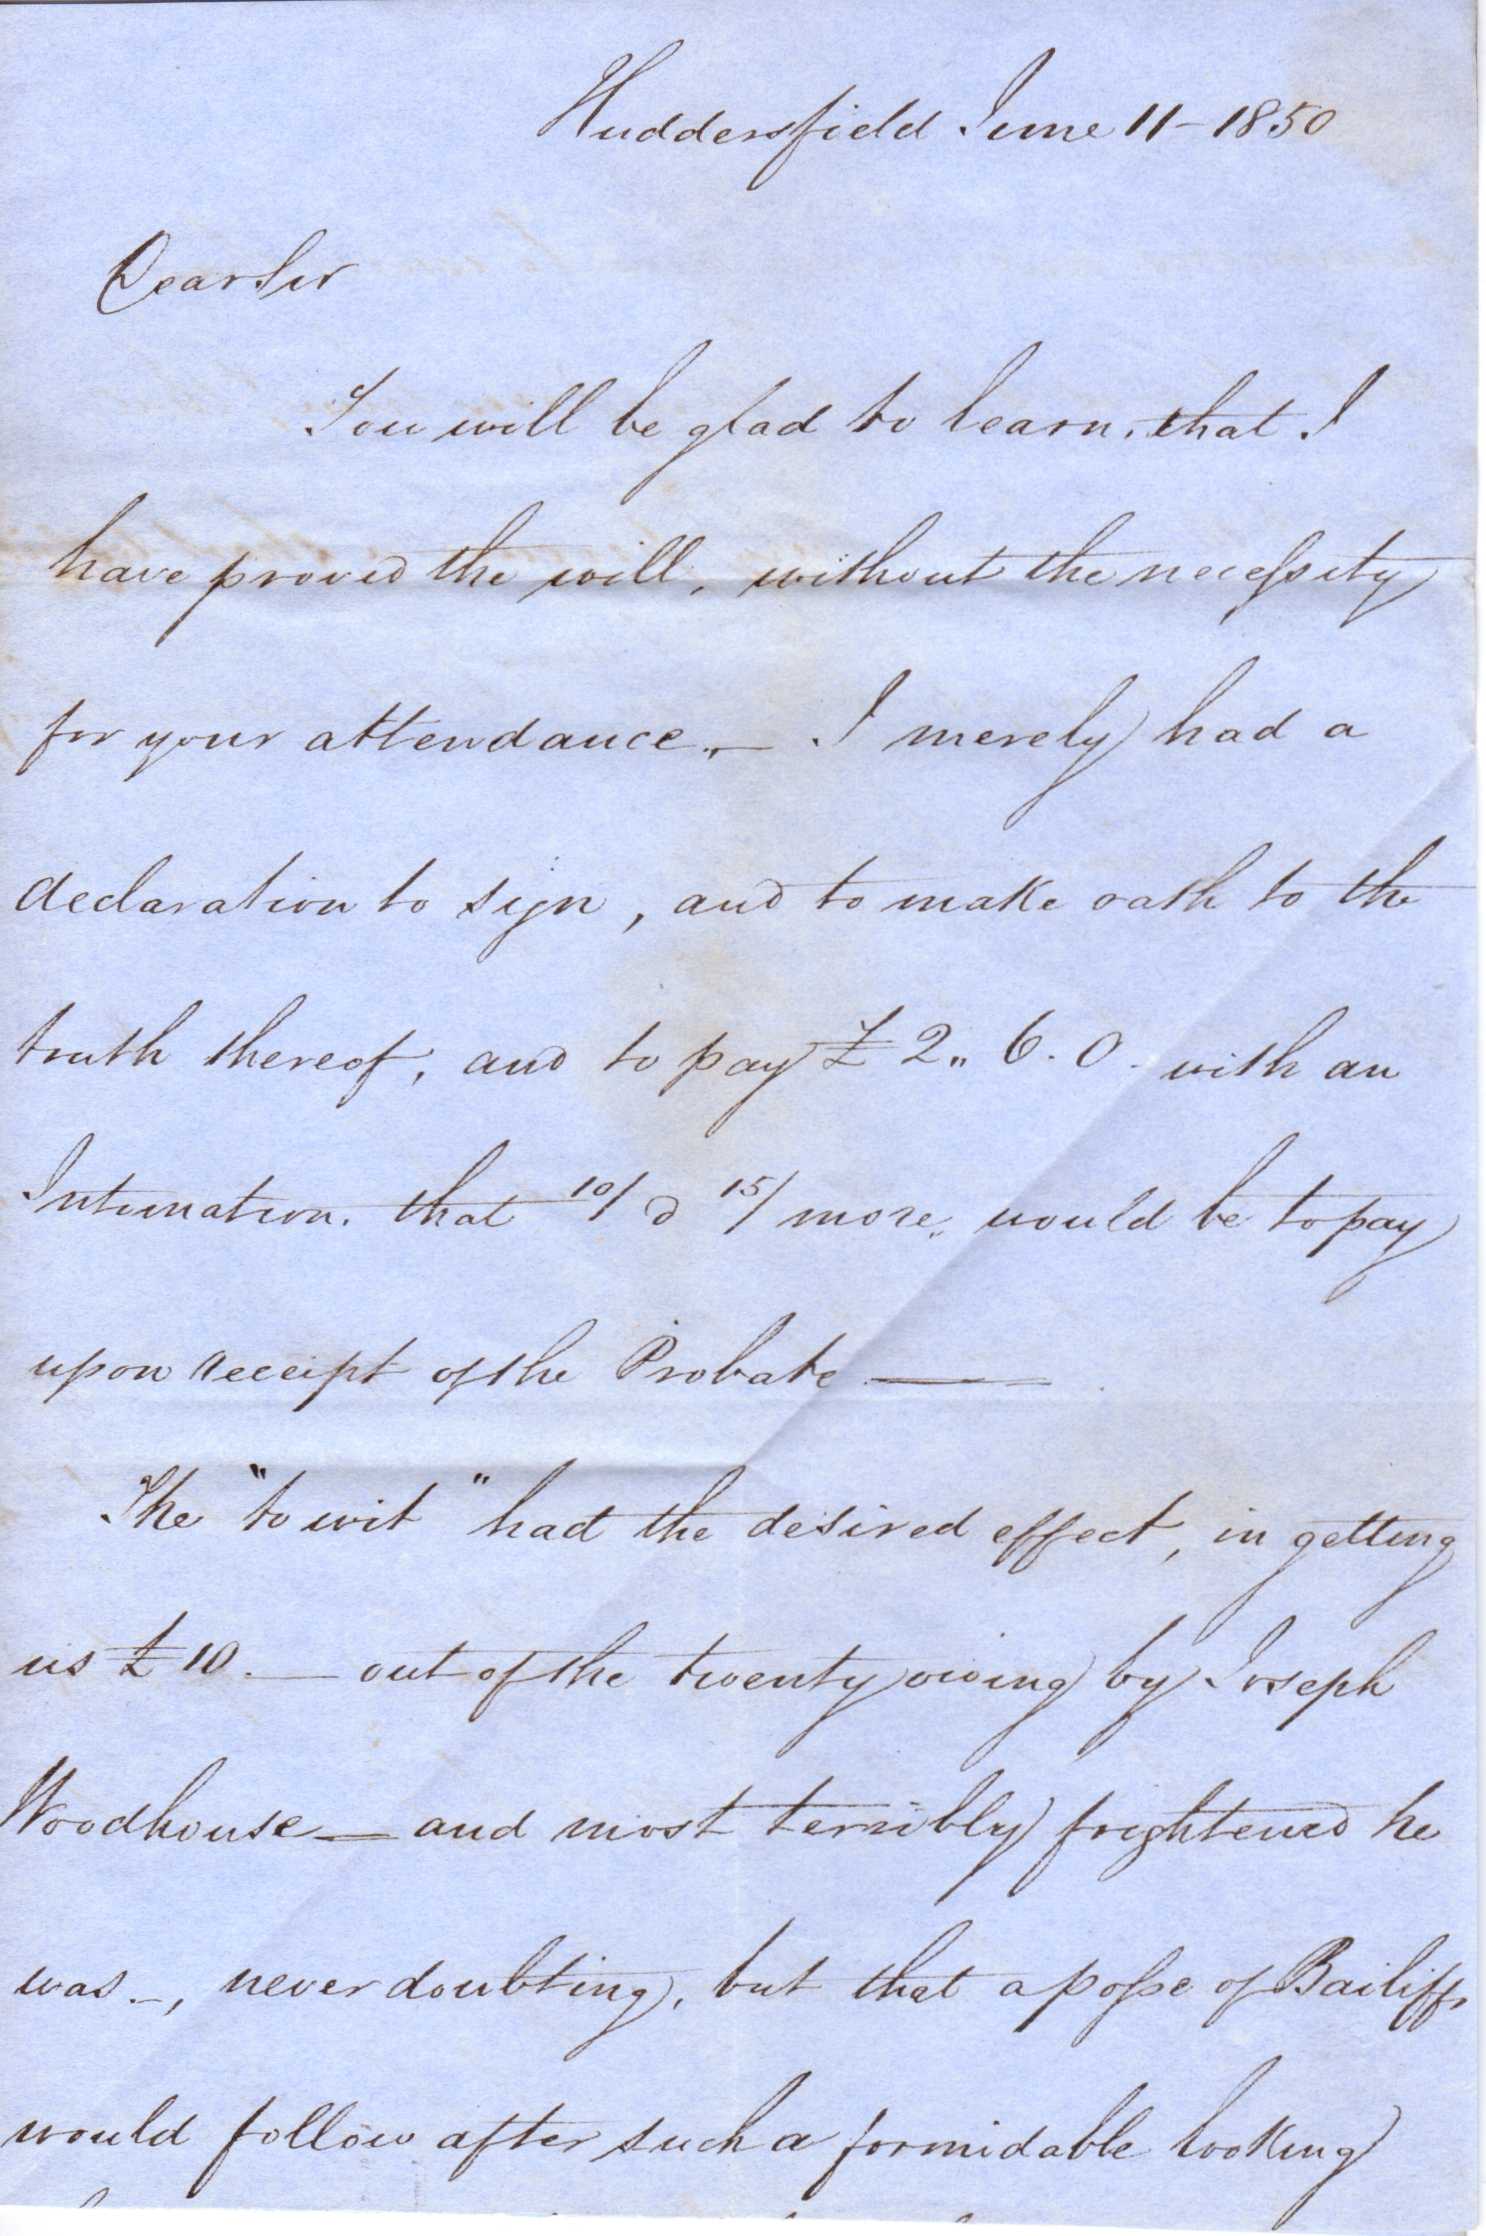 Huddersfield June 11 - 1850
Dear Sir
You will be glad to learn, that I
have proved the will, without the necessity
for your attendance. — I merely had a
declaration to sign, and to make oath to the
truth thereof, and to pay £ 2 " 6 . 0 . with an
Intimation. that 10/ 15/ more, would be to pay
upon receipt of the Probate ——
The "to wit" had the desired effect, in getting
us £ 10. — out of the twenty owing by Joseph
Woodhouse — and most terribly frightened he
was —, never doubting, but that a posse of Bailiffs
would follow after such a formidable looking